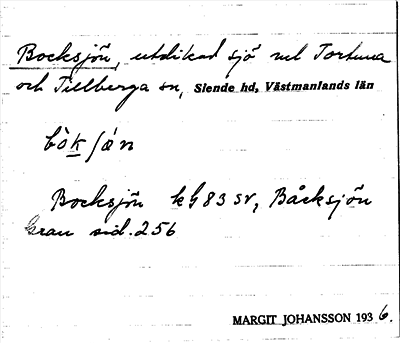 Bocksjön, utdikad sjö mel Tortuna
och Tillberga sn, Siende hd, Västmanlands län
Bocksjön kG 83 sv, Båcksjön
Grau sid. 256
MARGIT JOHANSSON 1936.